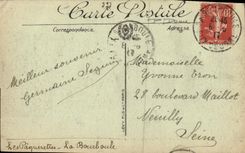 Carte Postale
Correspondance
Adresse
LA BOURBOULE
Meilleur souvenir
Germaine Seguin
Mademoiselle
Yvonne Eron
28 boulevard Maillot
Neuilly
Seine
Les Pâquerettes La Bourboule